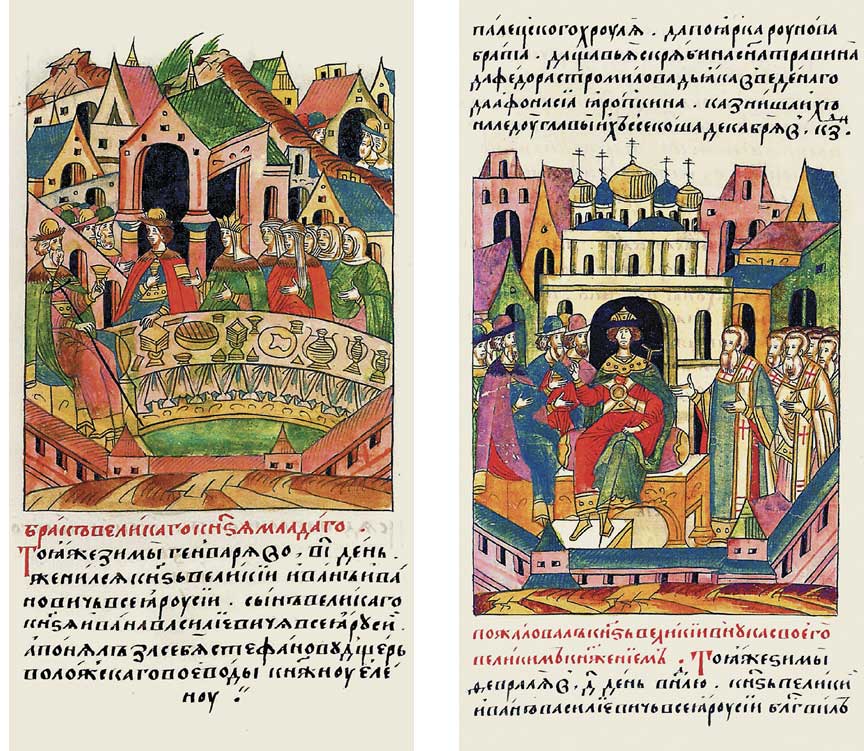 бракъ великаго кнѕя младаго
Тоꙗже зимы генваря во, в҃і день.
женился кнѕь великїи иванъ ива
новичь всеꙗ роусїи. сынъ великаго
кнѕя ивана василїевича всеꙗ руси.
а понялъ за себя стефанову дщерь
воложскаго воеводы кнѧжноу еле
ноу
палецского хроулꙗ. да поꙗрка роунова
брата. да щавьꙗ скрябина сна травина
да федора стромилова дьꙗка введенаго
да афонасїа ꙗропкина. казниша ихъ
на ледоу главы ихъ ссекоша декабря в, к҃з. дн
пожаловалъ кнѕь великїи внука своего
великимъ кнѧженїемъ. Тоꙗже зимы
февраля в, д҃ день в нлю. кнѕь велики
иванъ василїевичь всеꙗ роусїи блгвилъ